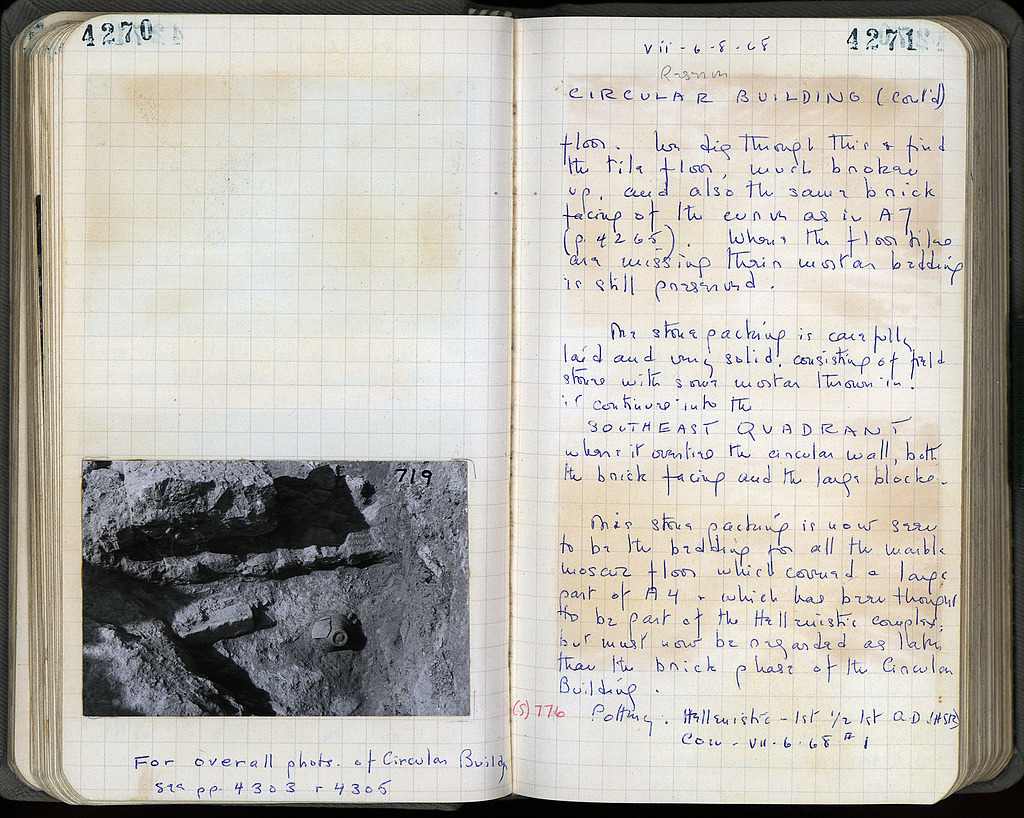 4270
719
For overall phots. of Circular Buildg
see pp. 4303 + 4305
4271
vii-6-8-68
CIRCULAR BUILDING (Cont'd)
floor. We dig through this & find
the tile floor, much broken
up, and also the same brick
facing of the curve as in A7
(p. 4265). Where the floor tiles
are missing their mortar bedding
is still preserved.
The stone packing is carefully
laid and very solid, consisting of field
stones with some mortar thrown in.
it continues into the
SOUTHEAST QUADRANT
where it overlies the circular wall, both
the brick facing and the large blocks.
This stone packing is now seen
to be the bedding for all the marble
mosaic floor which covered a large
part of A4 & which has been thought
to be part of the Hellenistic complex;
but must now be regarded as later
than the brick phase of the Circular
Building.
(S) 776 Pottery. Hellenistic - 1st 1/2 1st A.D. (HSR)
Coin - VII-6-68 #1